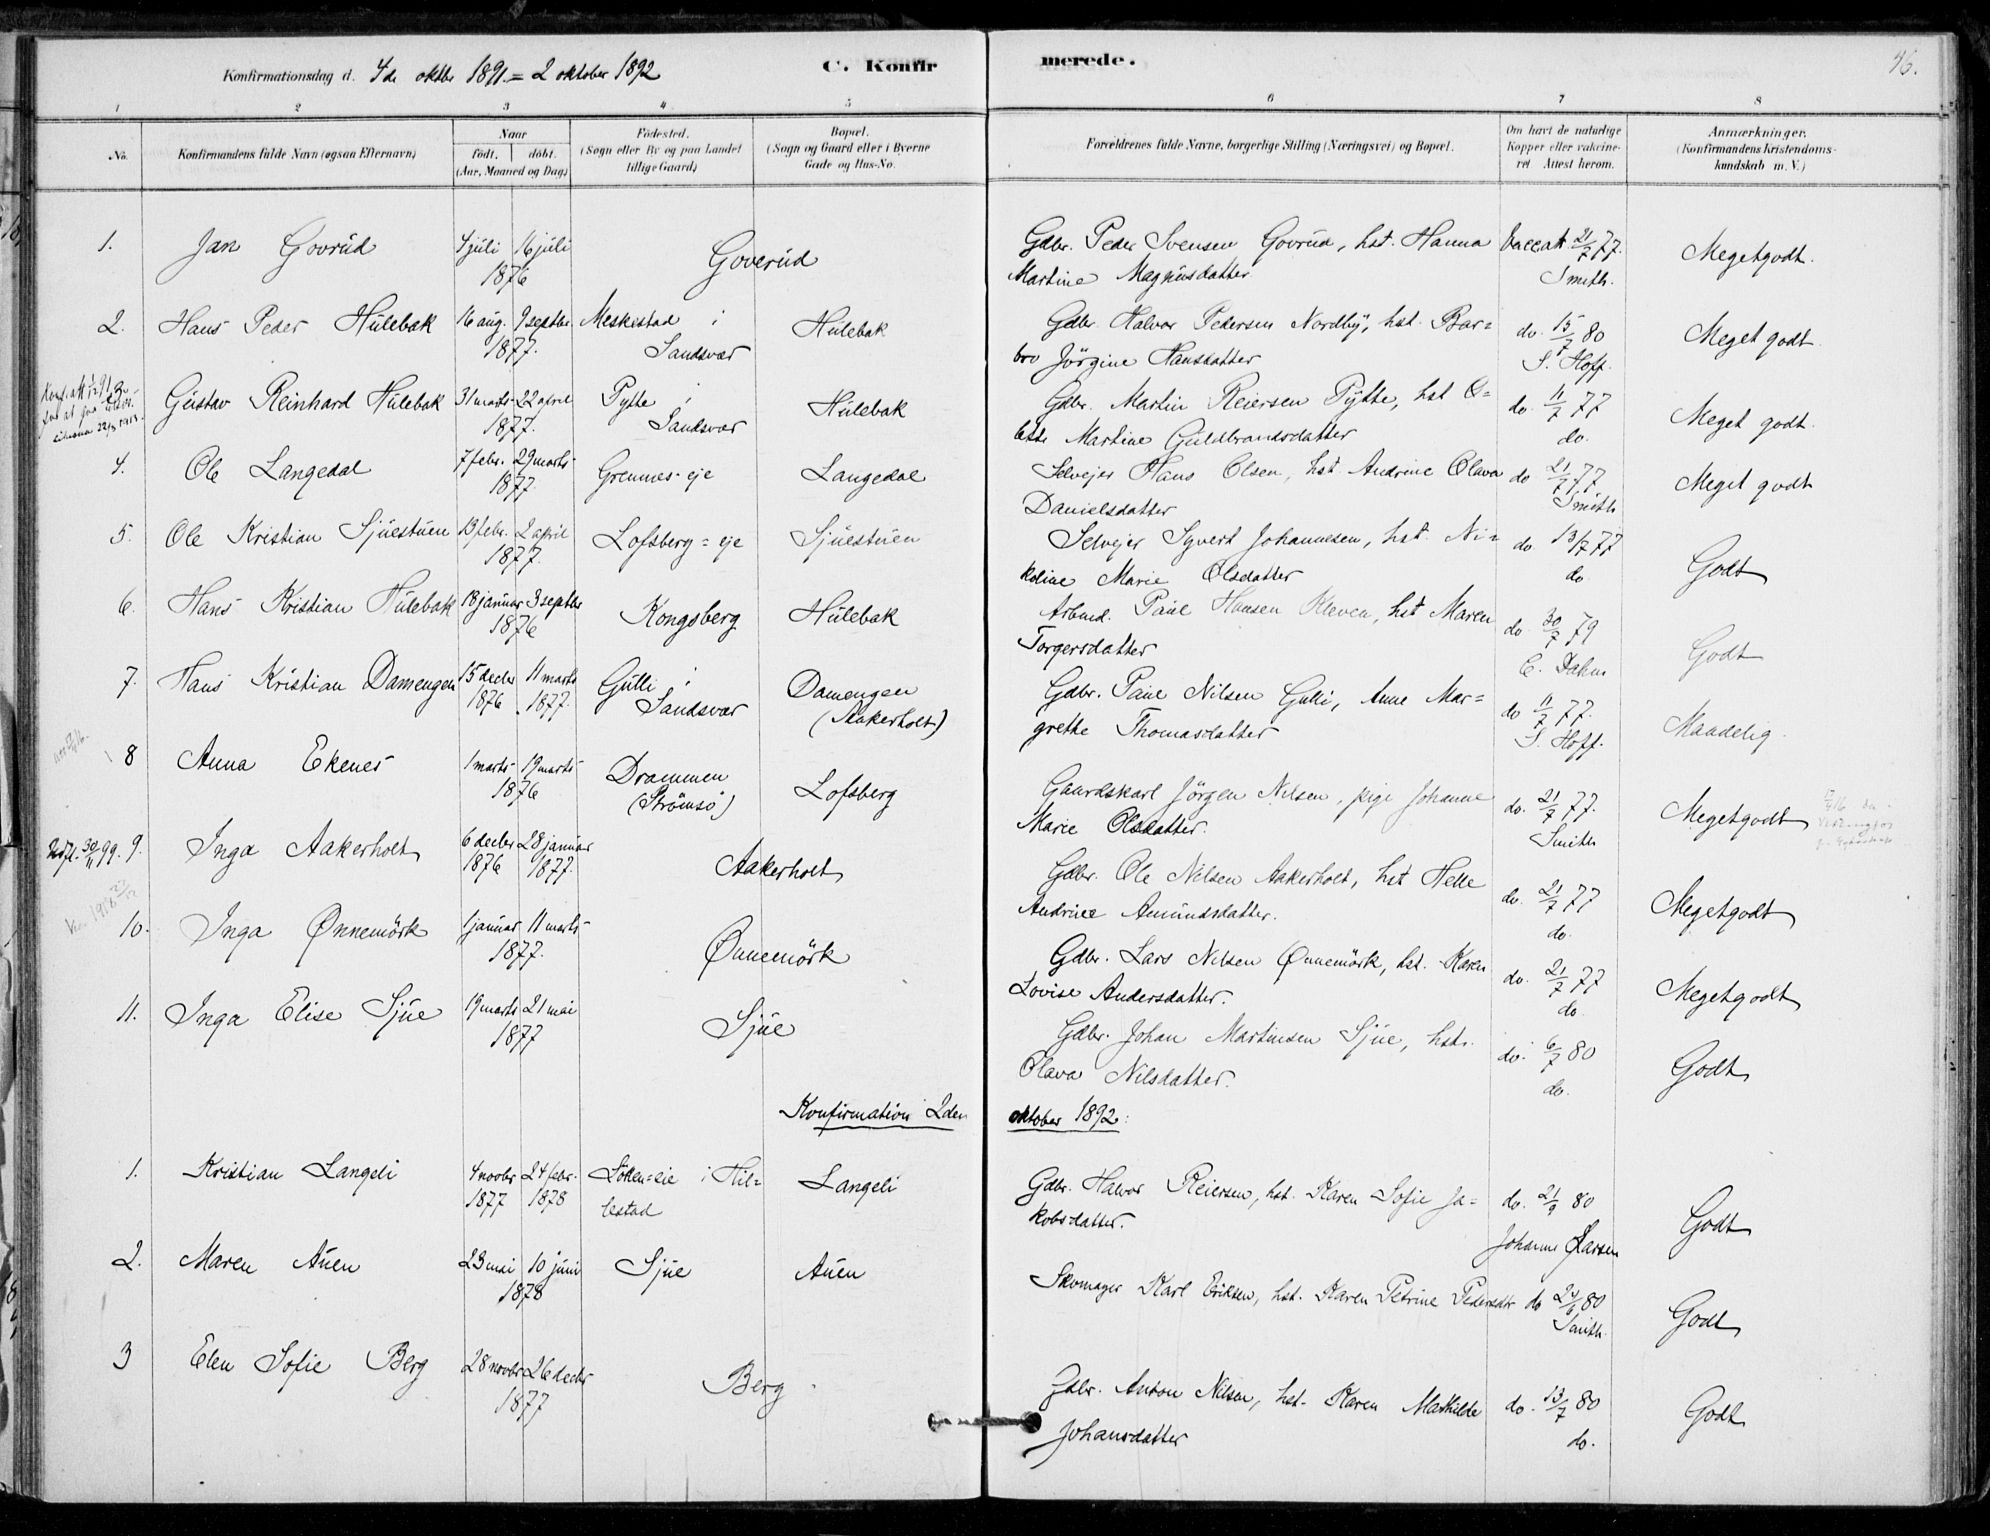 Konfirmationsdag d. 4de oktbr 1891 = 2 oktober 1892
C. Konfirmerede.
46.
1 2 3 4 5 6 7 8
No.
Konfirmandens fulde Navn (ogsaa Efternavn)
Naar
födt. döbt.
(Aar, Maaned og Dag)
Födested.
(Sogn eller By og paa Landet
tillige Gaard)
Bopæl.
(Sogn og Gaard eller i Byerne
Gade og Hus-No.
Forældrenes fulde Navne, borgerlige Stilling (Næringsvei) og Bopæl.
Om havt de naturlige
Kopper eller vakcine-
ret Attest herom.
Anmærkninger.
(Konfirmandens Kristendoms-
kundskab m. V.)
1. Jan Govrud 4 juli 16 juli Goverud Gdbr. Peder Svensen Govrud, hst. Hanna Vaccatt 21/7 77. Megetgodt.
1876 Martine Magnusdatter Smith.
2. Hans Peder Hulebak 16 aug. 9 septbr. Meskestad i Hulebak Gdbr. Halvor Pedersen Nordby, hst. Bar= do. 15/7 80 Meget godt.
1877. Sandsvær bro Jörgine Hansdatter S. Hoff.
Gustav Reinhard Hulebak 31 marts 22 april Pytte i Hulebak Gdbr. Martin Reiersen Pytte, hst O= do. 11/7 77 Meget godt.
1877. Sandsvær lette Martine Guldbrandsdatter do.
4. Ole Langedal 7 febr. 29 marts Grennes-eje Langedal Selvejer Hans Olsen, hst Andrine Olava do 21/7 77 Meget godt
1877. Danielsdatter Smith
5. Ole Kristian Sjuestuen 13 febr. 2 april Lofsberg = eje Sjuestuen Selvejer Syvert Johannesen, hst. Ni= do 13/7 77 Godt
1877. koline Marie Olsdatter do.
6. Hans Kristian Hulebak 18 januar 3 septbr Kongsberg Hulebak Arbmd. Paul Hansen Kleven, hst Maren do. 30/7 79 Godt
1876 Torgersdatter C. Dahm
7. Hans Kristian Damengen 15 decbr 11 marts Gulli i Damengen Gdbr. Paul Nilsen Gulli, Anne Mar= do 11/7 77. Maadelig.
1876 1877. Sandsvær (Aakerholt) grethe Thomasdatter S. Hoff.
8 Anna Ekenes 1 marts 19 marts Drammen Lofsberg Gaardskarl Jörgen Nilsen, pige Johanne do. 21/7 77. Megetgodt
1876 (Strömsö) Marie Olsdatter. Smith
9. Inga Aakerholt 6 decbr 28 januar Aakerholt Gdbr. Ole Nilsen Aakerholt, hst Helle do. 21/7 77 Megetgodt
30/11 99. 1876 1877. Andrine Amundsdatter. do.
10. Inga Ønnemörk 1 januar 11 marts Ønnemörk Gdbr. Lars Nilsen Ønnemörk, hst. Karen do. 21/7 77 Megetgodt
1877. Lovise Andersdatter. do.
11. Inga Elise Sjue 19 marts 21 mai Sjue Gdbr. Johan Martinsen Sjue, hstr. do. 6/7 80 Godt
1877 Olava Nilsdatter. do.
Konfirmation 2den oktober 1892:
1. Kristian Langeli 4 novbr 24 febr. Löken=eie i Hil= Langeli Gdbr. Halvor Reiersen, hst. Karen Sofie Ja= do. 21/9 80 Godt
1877 1878 lestad kobsdatter. Johanne Larsen
2. Maren Auen 23 mai 10 juni Sjue Auen Skomager Karl Eriksen, hst. Karen Petrine Pedersdtr do 24/6 80 Godt
1878 Smith.
3 Elen Sofie Berg 28 novbr 26 decbr Berg Gdbr. Anton Nilsen, hst. Karen Mathilde do. 13/7 80 Godt
1877 Johansdatter do.